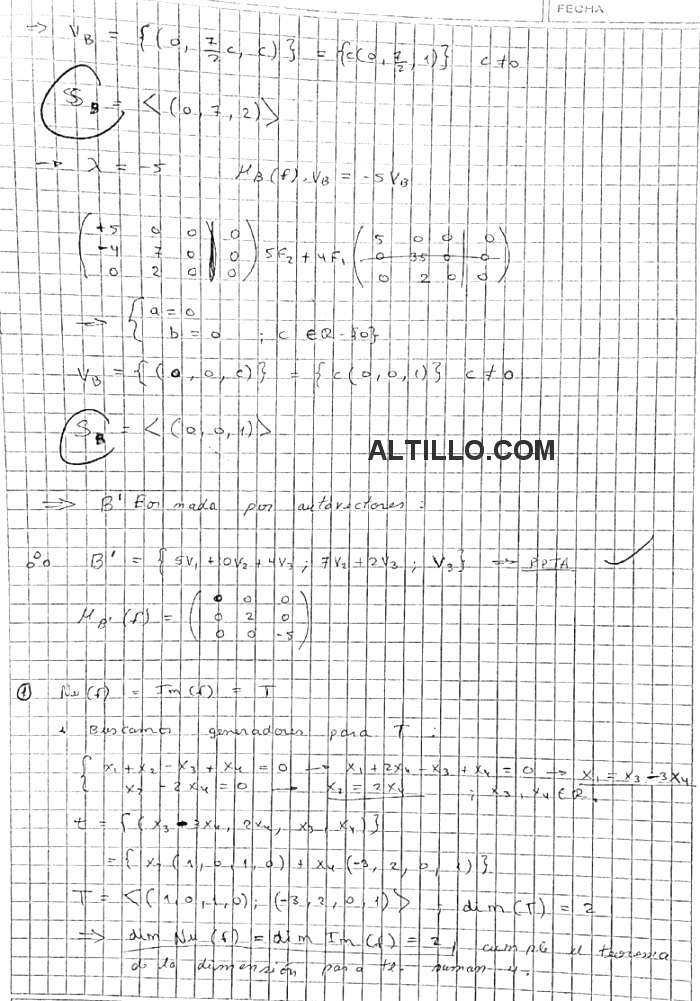 FECHA
⇒ V_B = {(0, 7/2 c, c)} = {c(0, 7/2, 1)} c≠0
S_B = <(0, 7, 2)>
→ λ = -5 M_B(f).V_B = -5V_B
(+5 0 0 | 0) (5 0 0 | 0)
(-4 7 0 | 0) 5F₂ + 4F₁ (0 35 0 | 0)
(0 2 0 | 0) (0 2 0 | 0)
⇒ { a = 0
b = 0 ; c ∈ R - {0}
V_B = {(0, 0, c)} = {c(0, 0, 1)} c≠0
S_B = <(0, 0, 1)>
ALTILLO.COM
⇒ B' Formada por autovectores:
∴ B' = {5V₁ + 10V₂ + 4V₃ ; 7V₂ + 2V₃ ; V₃} ⇒ RPTA ✓
(0 0 0)
M_B'(f) = (0 2 0)
(0 0 -5)
① Nu(f) = Im(f) = T
Buscamos generadores para T :
{ x₁ + x₂ - x₃ + x₄ = 0 → x₁ + 2x₄ - x₃ + x₄ = 0 → x₁ = x₃ - 3x₄
x₂ - 2x₄ = 0 → x₂ = 2x₄ ; x₃, x₄ ∈ R.
t = {(x₃ - 3x₄, 2x₄, x₃, x₄)}
= {x₃(1, 0, 1, 0) + x₄(-3, 2, 0, 1)}
T = <(1, 0, 1, 0); (-3, 2, 0, 1)> ; dim(T) = 2
⇒ dim Nu(f) = dim Im(f) = 2, cumple el teorema
de la dimensión para